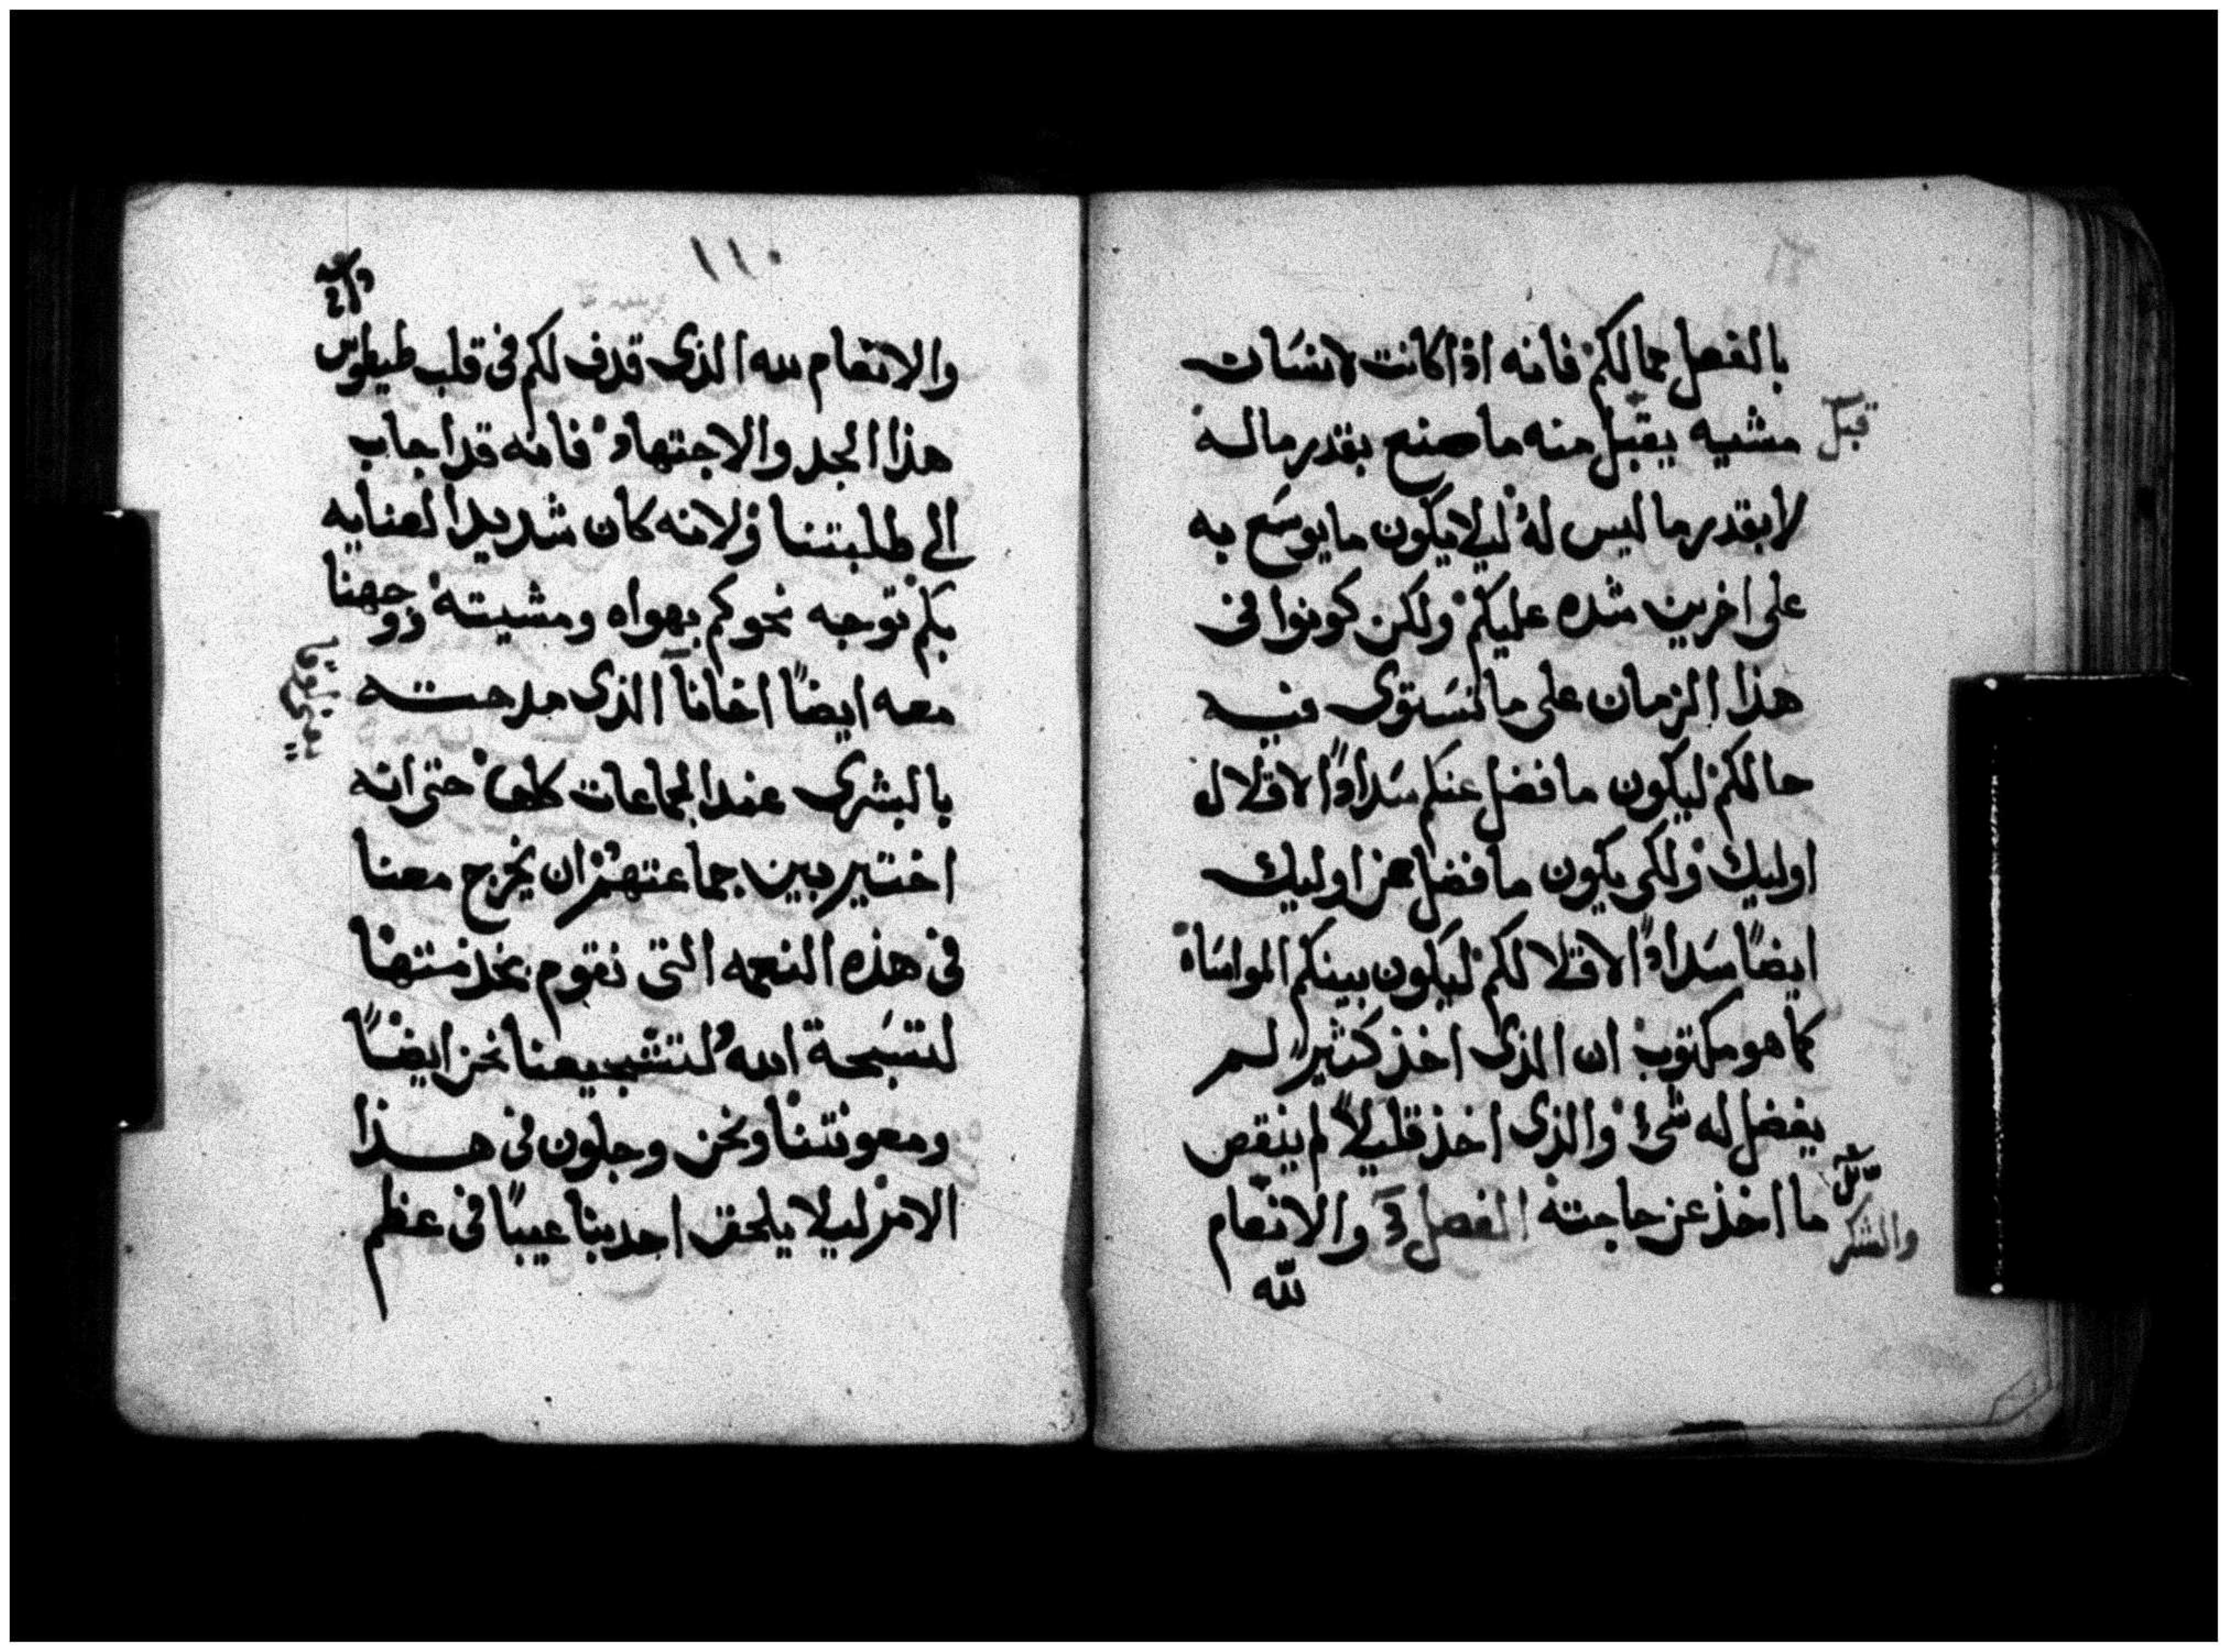 بالفعل مما لكم فانه اذا كانت لانسان
قبل
مشيه يقبل منه ما صنع بقدر ماله
لا بقدر ما ليس له ليلا يكون ما يوسع به
على اخرين شده عليكم ولكن كونوا في
هذا الزمان على ما تستوى فيه
حالكم ليكون ما فضل عنكم سدادًا لاقلال
اوليك ولكى يكون ما فضل عن اوليك
ايضًا سدادًا لاقلالكم ليكون بينكم المواساة
كما هو مكتوب ان الذى اخذ كثير لم
يفضل له شىء والذى اخذ قليلاً لم ينقص
ما اخذ عن حاجته الفصل والانعام
والشكر
لله
١١٠
والانعام لله الذى قذف لكم فى قلب طيطوس
هذا الجد والاجتهاد فانه قد اجاب
الى طلبتنا ولانه كان شديد العنايه
بكم توجه نحوكم بهواه ومشيته ووجهنا
معه ايضًا اخانا الذى مدحته
بالبشرى عند الجماعات كلها حتى انه
اختير بين جماعتهم ان يخرج معنا
فى هذه النعمه التى نقوم بخدمتها
لتسبحة الله لتشجيعنا نحن ايضًا
ومعونتنا ونحن وجلون فى هذا
الامر ليلا يلحق احد بنا عيبًا فى عظم